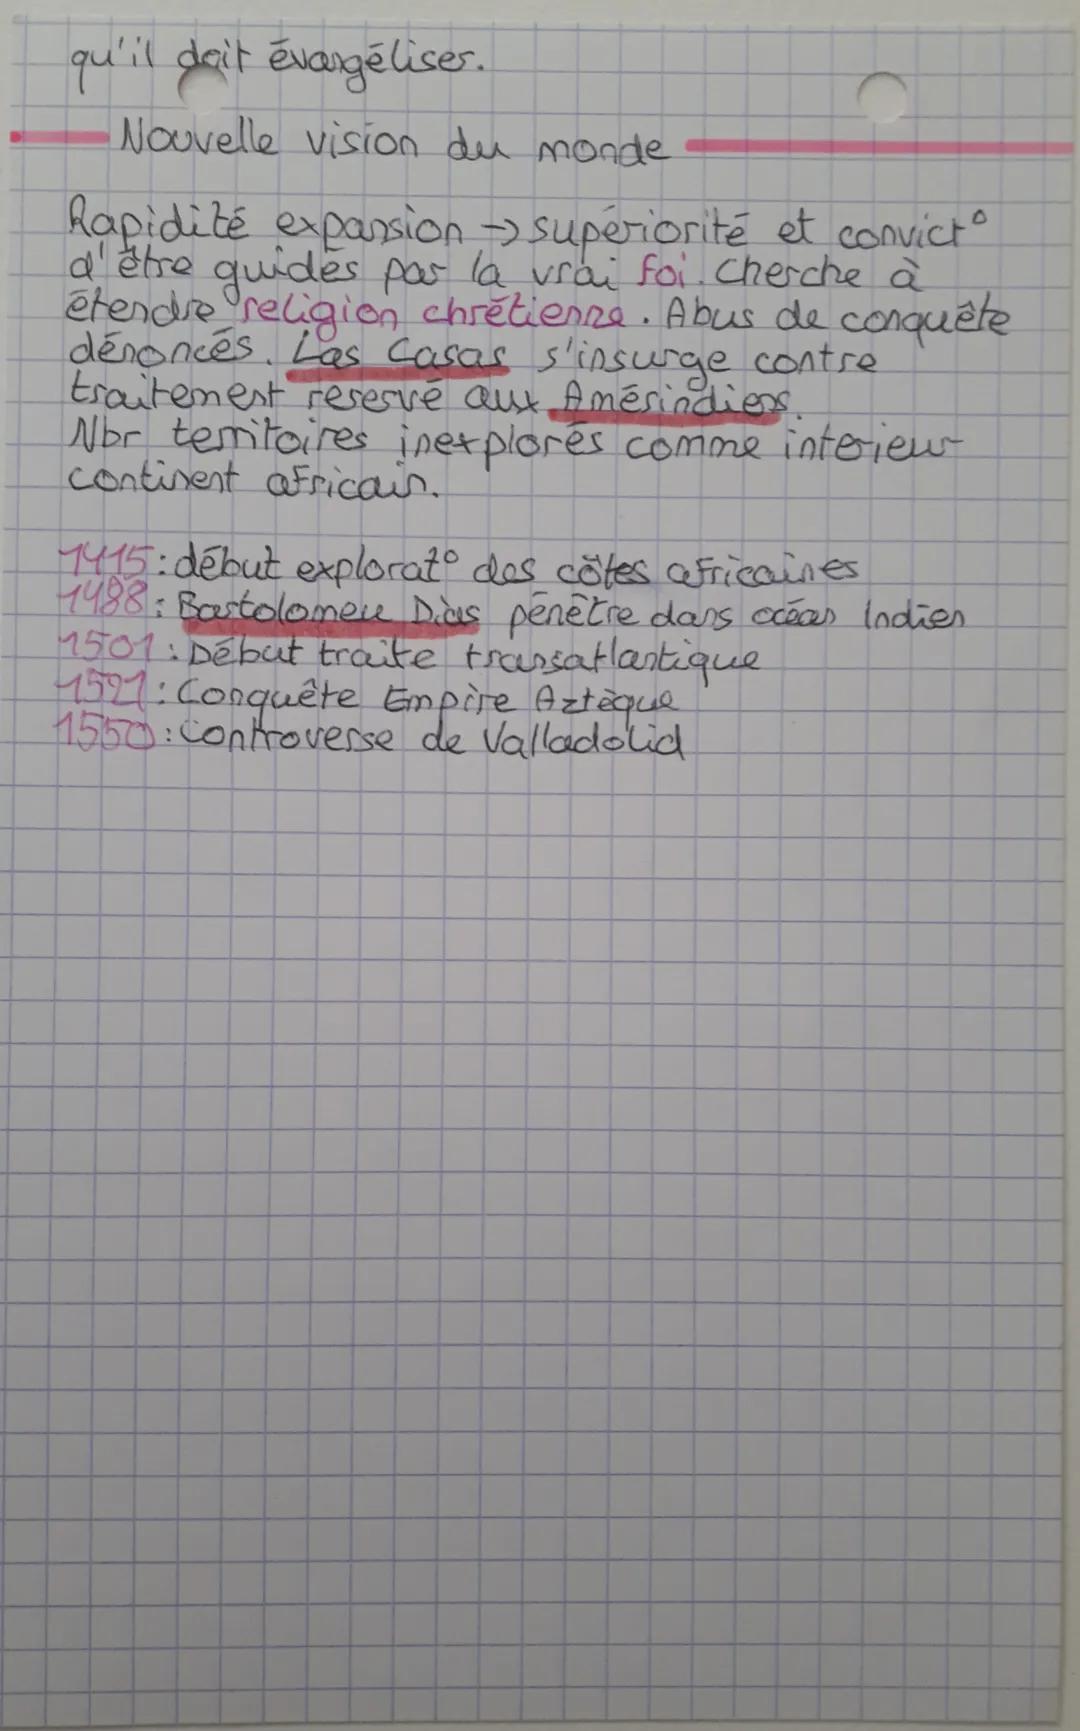 qu'il doit évangéliser.
Nouvelle vision du monde
Rapidité expansion → supériorité et convict°
d'être guidés par la vrai foi. Cherche à
étendre religion chrétienne. Abus de conquête
dénoncés. Las Casas s'insurge contre
traitement reservé aux Amérindiens.
Nbr territoires inexplorés comme interieur
continent africain.
1415 : début explorat° des côtes africaines
1488 : Bartolomeu Dias pénètre dans océan Indien
1501 : Début traite transatlantique
1521 : Conquête Empire Aztèque
1550 : Controverse de Valladolid